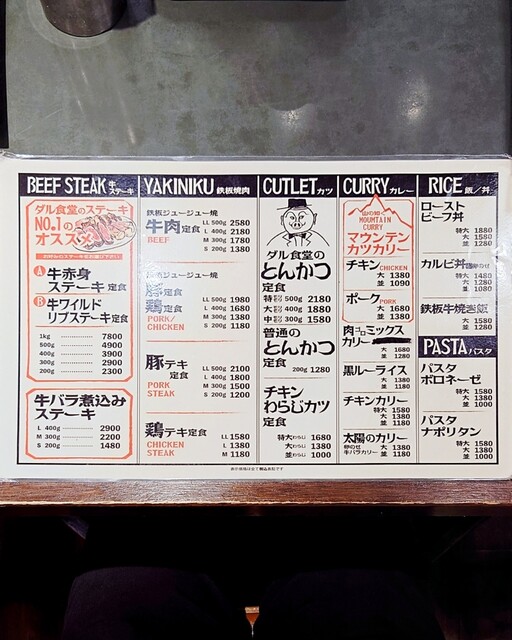 BEEF STEAK 牛ステーキ
ダル食堂のステーキ
NO.1の
オスス
A 牛赤身
ステーキ 定食
B 牛ワイルド
リブステーキ定食
1kg 7800
500g 4900
400g 3900
300g 2900
200g 2300
牛バラ煮込み
ステーキ
L 400g 2900
M 300g 2200
S 200g 1480
YAKINIKU 鉄板焼肉
鉄板ジュージュー焼
牛肉定食
BEEF
LL 500g 2580
L 400g 2180
M 300g 1780
S 200g 1380
鉄板ジュージュー焼
豚定食
鶏定食
PORK/
CHICKEN
LL 500g 1980
L 400g 1680
M 300g 1380
S 200g 1180
豚テキ定食
PORK
STEAK
LL 500g 2100
L 400g 1800
M 300g 1500
S 200g 1200
鶏テキ定食
CHICKEN
STEAK
LL 1580
L 1380
M 1180
CUTLET カツ
ダル食堂の
とんかつ
定食
特 500g 2180
大 400g 1880
中 300g 1580
普通の
とんかつ
定食
200g 1280
チキン
わらじカツ
定食
特大わらじ 1680
大わらじ 1380
並わらじ 1180
CURRY カレー
MOUNTAIN
CURRY
マウンテン
カツカリー
チキン CHICKEN
大 1380
並 1090
ポーク PORK
大 1680
並 1380
肉ゴロミックス
カリー
大 1680
並 1280
黒ルーライス
大 1380
並 1180
チキンカリー
特大 1580
大 1380
並 1180
太陽のカリー
卵のせ
牛バラカリー
大 1380
並 1180
RICE 飯/丼
ロースト
ビーフ丼
特大 1880
大 1580
並 1280
カルビ丼 卵のせ
特大 1480
大 1280
並 1080
鉄板牛焼き飯
大 1580
並 1280
PASTA パスタ
パスタ
ボロネーゼ
特大 1580
大 1380
並 1000
パスタ
ナポリタン
特大 1580
大 1380
並 1000
表示価格は全て税込み価格です